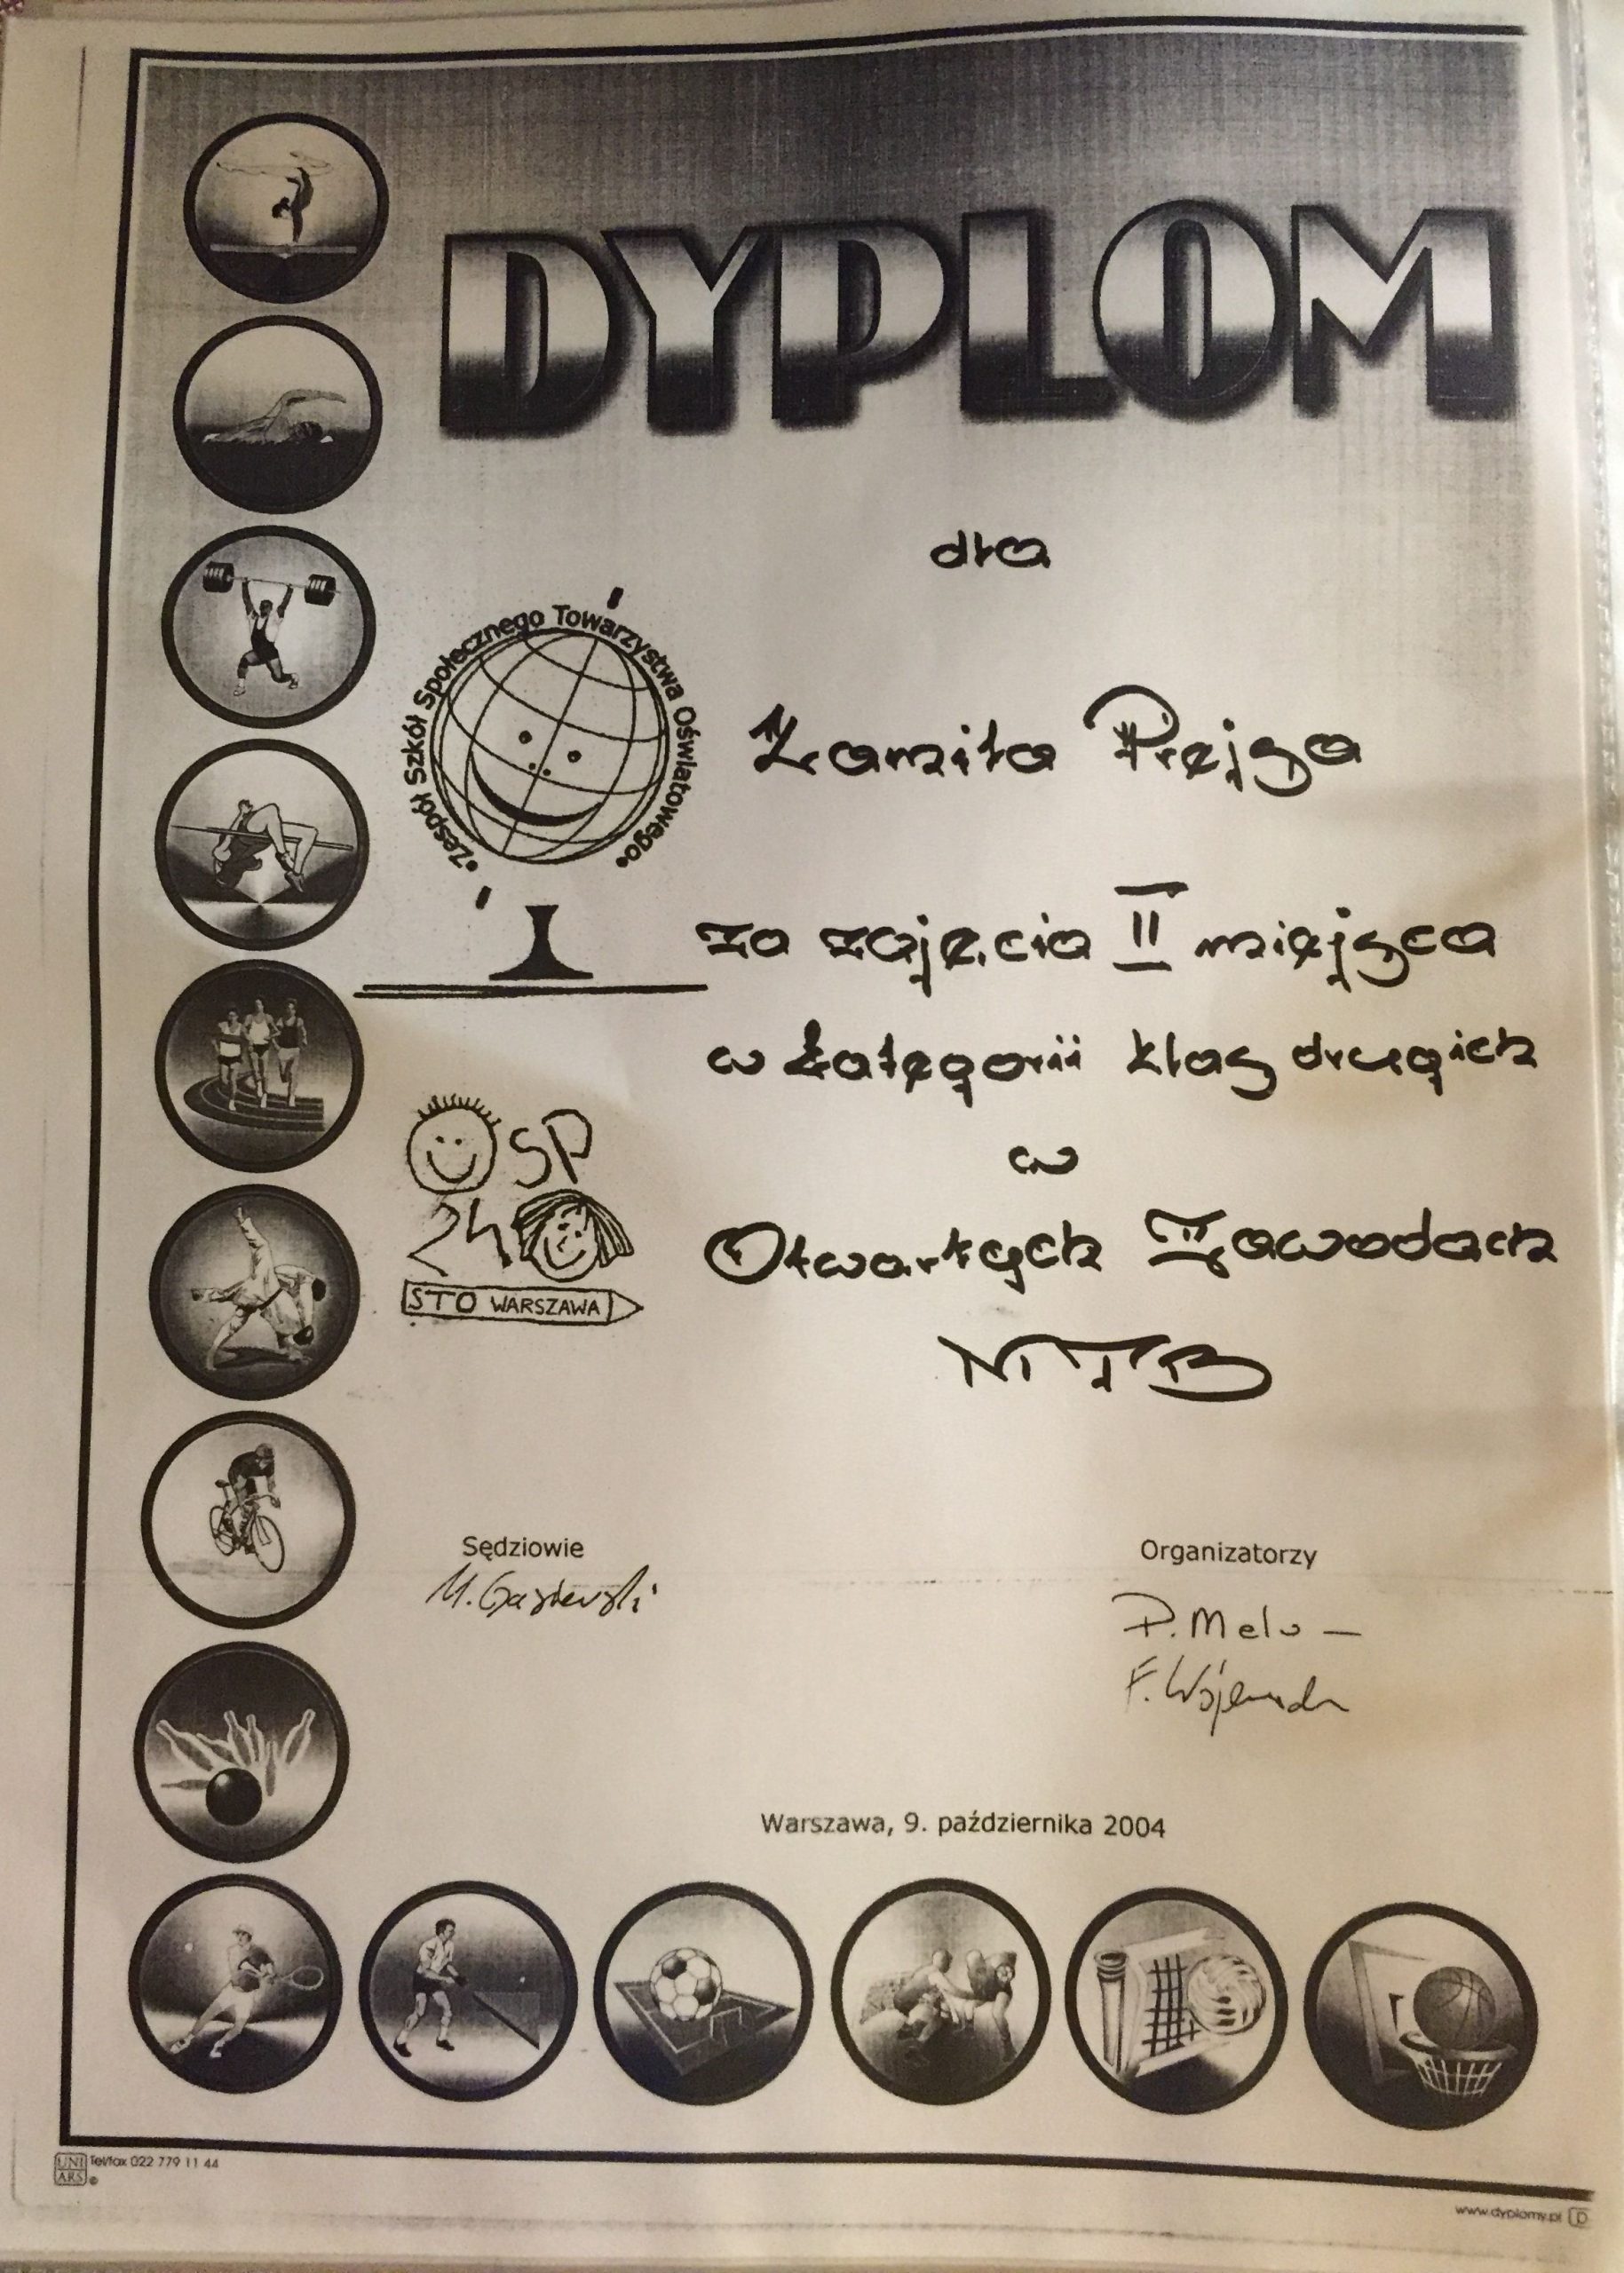 DYPLOM
dla
•Zespół Szkół Społecznego Towarzystwa Oświatowego•
Kamila
za zajęcia II miejsca
w kategorii klas drugich
w
Otwartych Zawodach
MTB
SP
24
STO WARSZAWA
Sędziowie
Organizatorzy
P. Melo
Warszawa, 9. października 2004
UNI
ARS
Tel/fax 022 779 11 44
www.dyplomy.pl